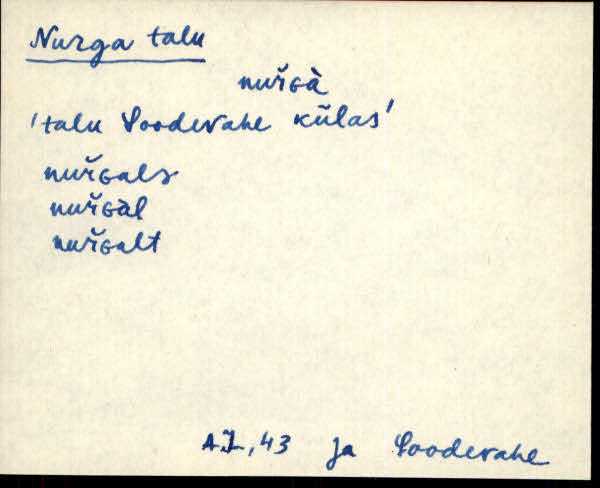 Nurga talu
nuřɢà
'talu Soodevahe külas'
nuřɢalᴇ
nuřɢàl
nuřɢalt
43 ja Soodevahe